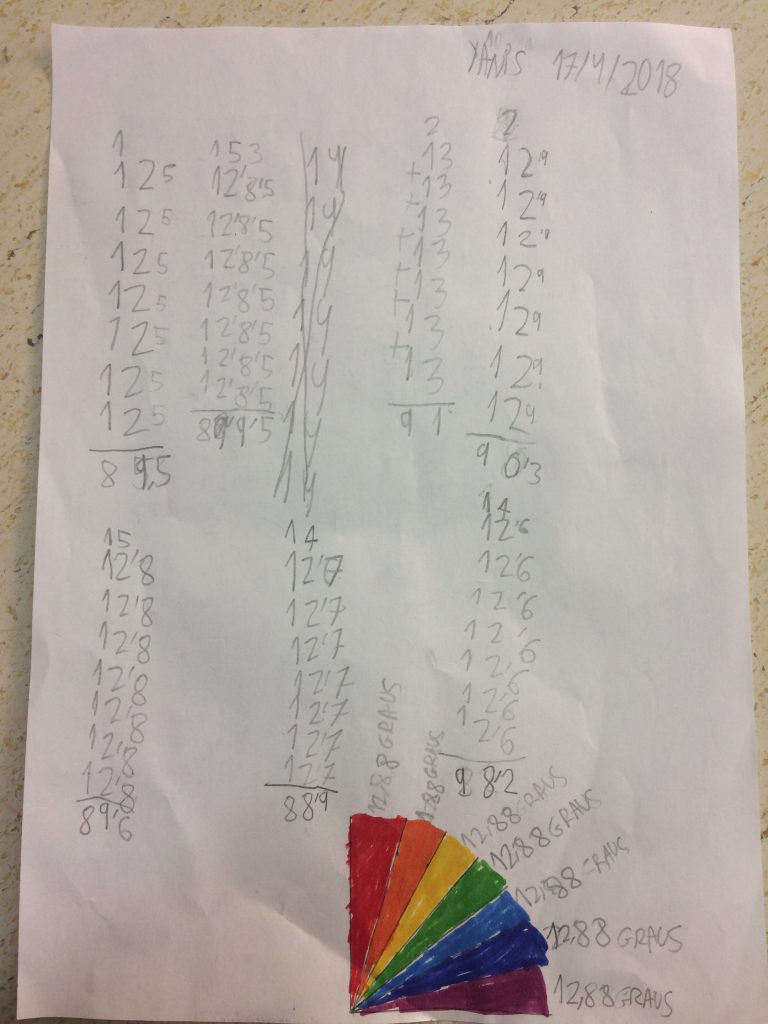 YANIS 17/4/2018
1
125
125
125
125
125
125
125
8 9,5
153
12'8'5
12'8'5
12'8'5
12'8'5
12'8'5
12'8'5
12'8'5
89'9'5
14
14
14
14
14
14
14
2
13
+13
+13
+13
+13
+13
+13
91
2
12'9
12'9
12'9
12'9
12'9
12'9
12'9
90'3
15
12'8
12'8
12'8
12'8
12'8
12'8
12'8
89'6
14
12'7
12'7
12'7
12'7
12'7
12'7
12'7
88'9
14
12'6
12'6
12'6
12'6
12'6
12'6
12'6
88'2
12,88 GRAUS
12,88 GRAUS
12,88 GRAUS
12,88 GRAUS
12,88 GRAUS
12,88 GRAUS
12,88 GRAUS